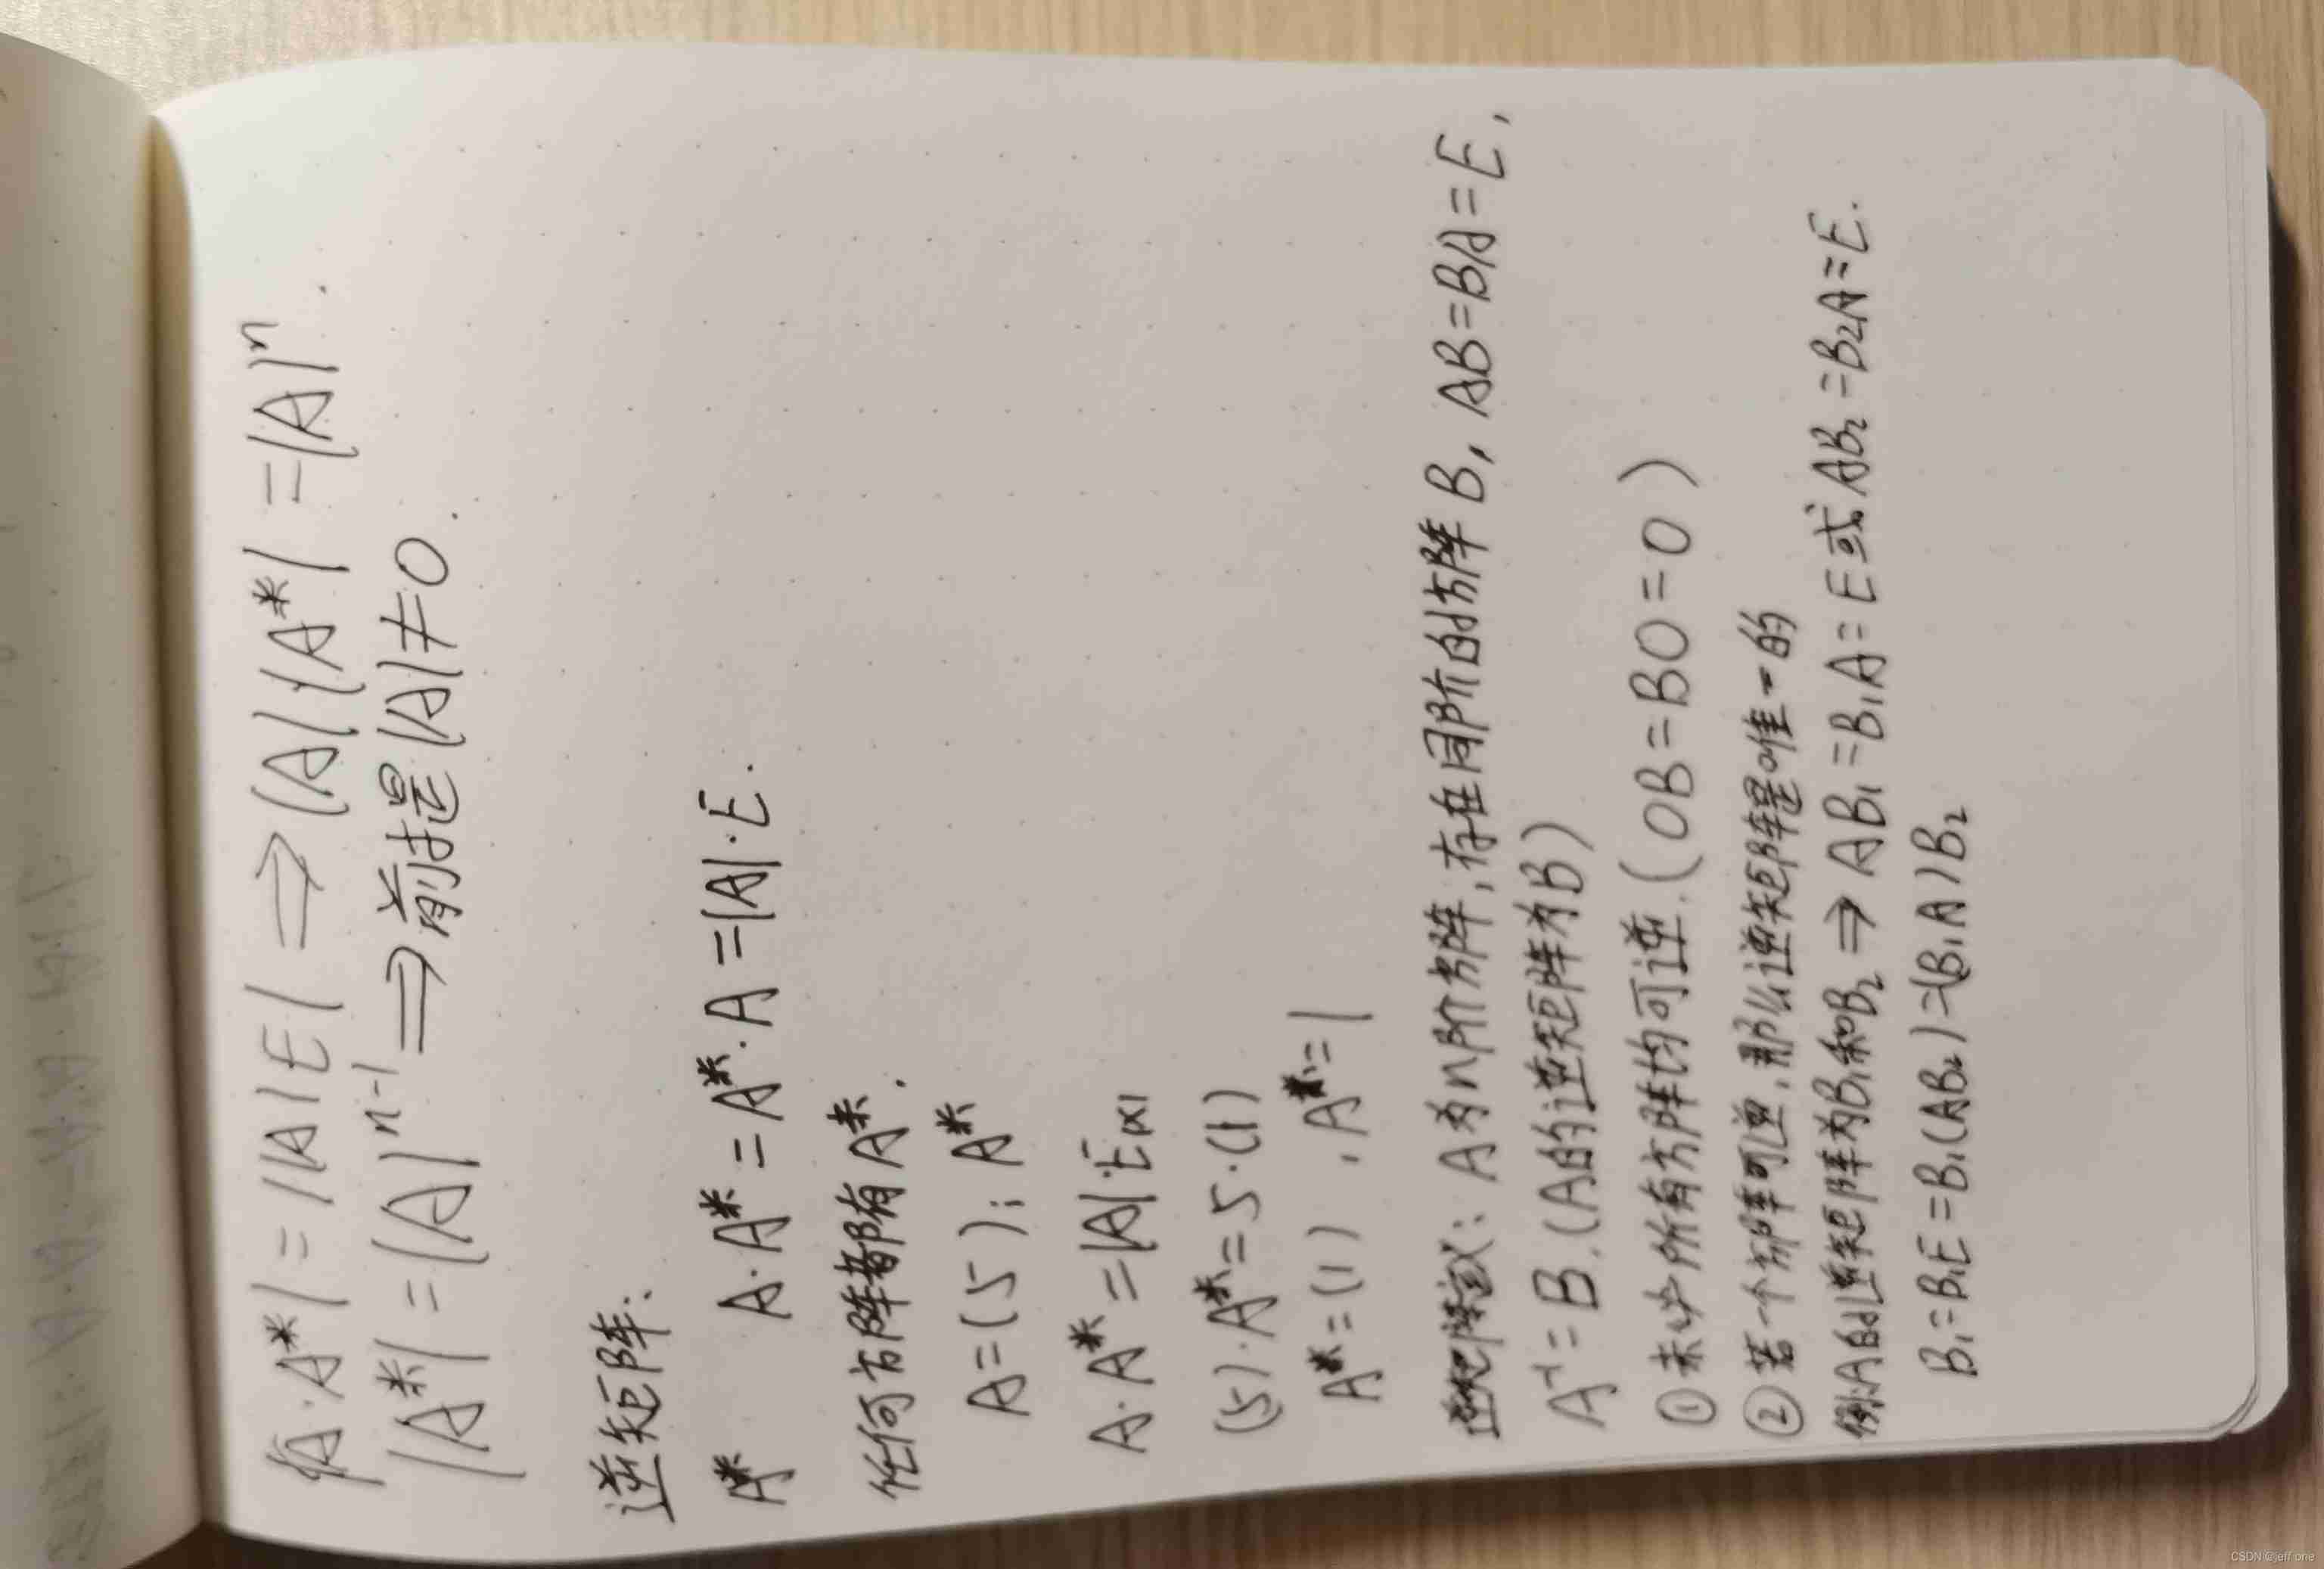 |A·A*| = ||A|E| ⇒ |A||A*| = |A|ⁿ.
|A*| = |A|ⁿ⁻¹ ⇒ 前提|A|≠0.
逆矩阵:
A* A·A* = A*·A = |A|·E.
任何方阵都有A*.
A=(5); A*
A·A* = |A|·E₁ₓ₁
(5)·A* = 5·(1)
A* = (1) , A* = 1
逆矩阵定义: A为n阶方阵, 存在同阶的方阵B, AB=BA=E,
A⁻¹=B.(A的逆矩阵为B)
① 未必所有方阵均可逆.(OB=BO=O)
② 若一个方阵可逆, 那么逆矩阵是唯一的
例:A的逆矩阵为B₁和B₂ ⇒ AB₁=B₁A=E或AB₂=B₂A=E.
B₁=B₁E=B₁(AB₂)=(B₁A)B₂
CSDN @jeff one